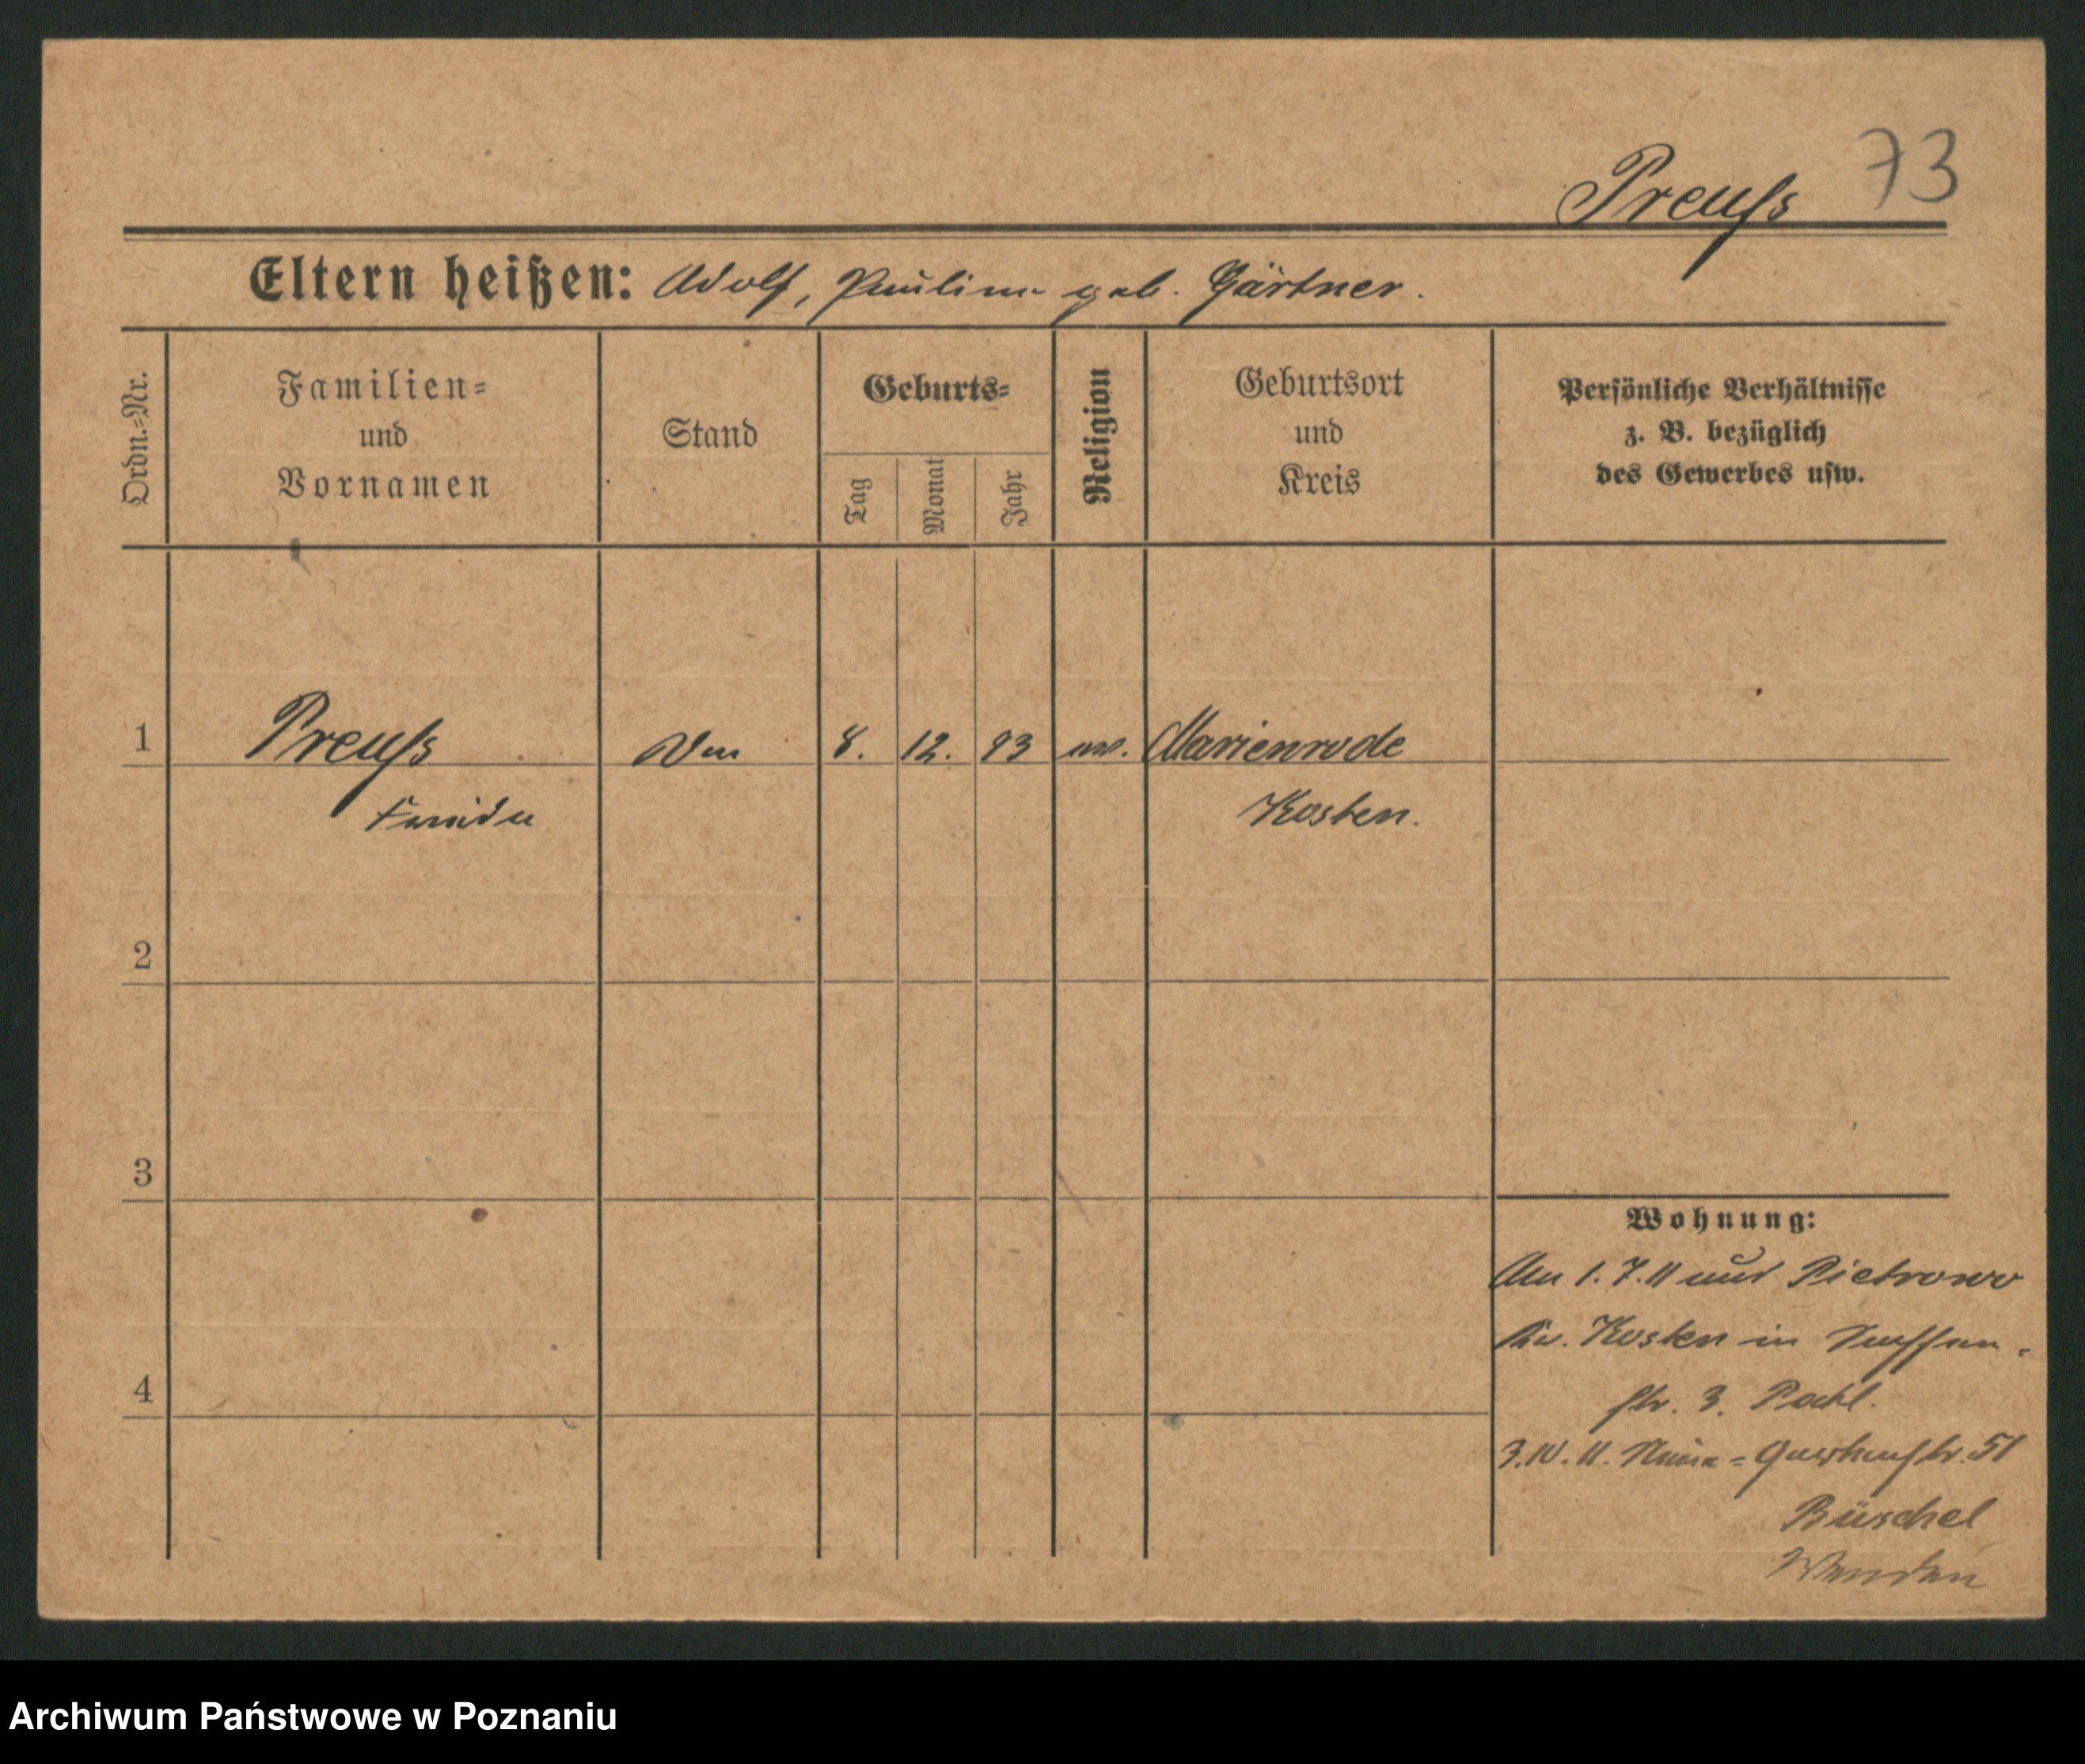 73
Preuß
Eltern heißen: Adolf, Pauline geb. Gärtner.
Ordn.=Nr.
Familien=
und
Vornamen
Stand
Geburts=
Tag
Monat
Jahr
Religion
Geburtsort
und
Kreis
Persönliche Verhältnisse
z. B. bezüglich
des Gewerbes usw.
1 Preuß 8. 12. 93 ev. Marienrode
Frieda Kosten.
2
3
4
Wohnung:
Am 1. 7. 11 aus Pietrowo
Kr. Kosten in
str. 3. Pochl.
3. 10. 11. Neue=Gartenstr. 51
Büschel
Archiwum Państwowe w Poznaniu